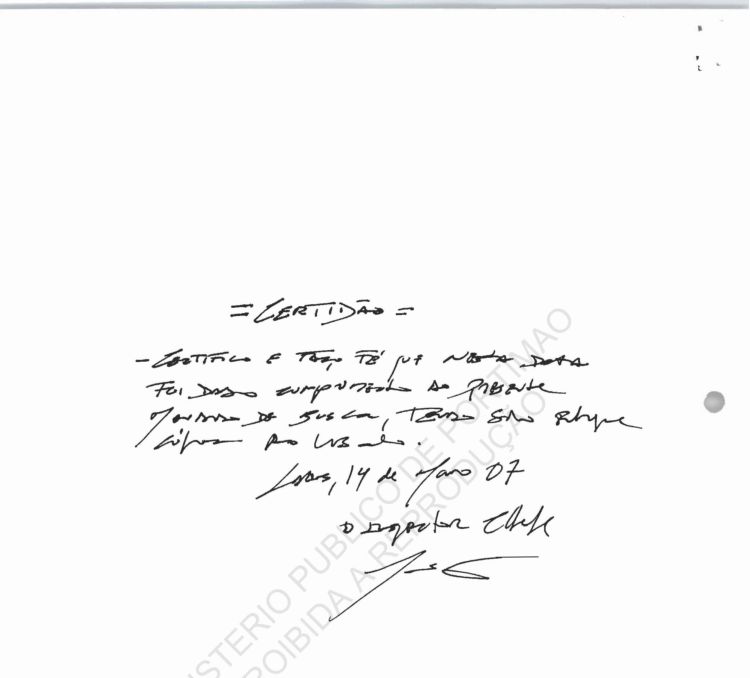 = CERTIDÃO =
- Certifico e faço fé que nesta data
foi dado cumprimento ao presente
Mandado de Busca, tendo sido
cópia ao
Lagos, 14 de Maio 07
O Inspector Chefe
MINISTERIO PUBLICO DE PORTIMAO
PROIBIDA A REPRODUÇÃO